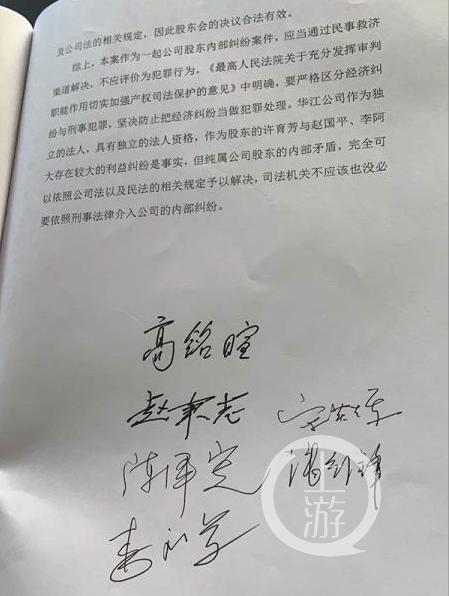 及公司法的相关规定，因此股东会的决议合法有效。
综上，本案作为一起公司股东内部纠纷案件，应当通过民事救济
渠道解决，不应评价为犯罪行为。《最高人民法院关于充分发挥审判
职能作用切实加强产权司法保护的意见》中明确，要严格区分经济纠
纷与刑事犯罪，坚决防止把经济纠纷当做犯罪处理。华江公司作为独
立的法人，具有独立的法人资格，作为股东的许育芳与赵国平、李阿
大存在较大的利益纠纷是事实，但纯属公司股东的内部矛盾，完全可
以依照公司法以及民法的相关规定予以解决，司法机关不应该也没必
要依照刑事法律介入公司的内部纠纷。
高铭暄
赵秉志
陈泽宪
上游